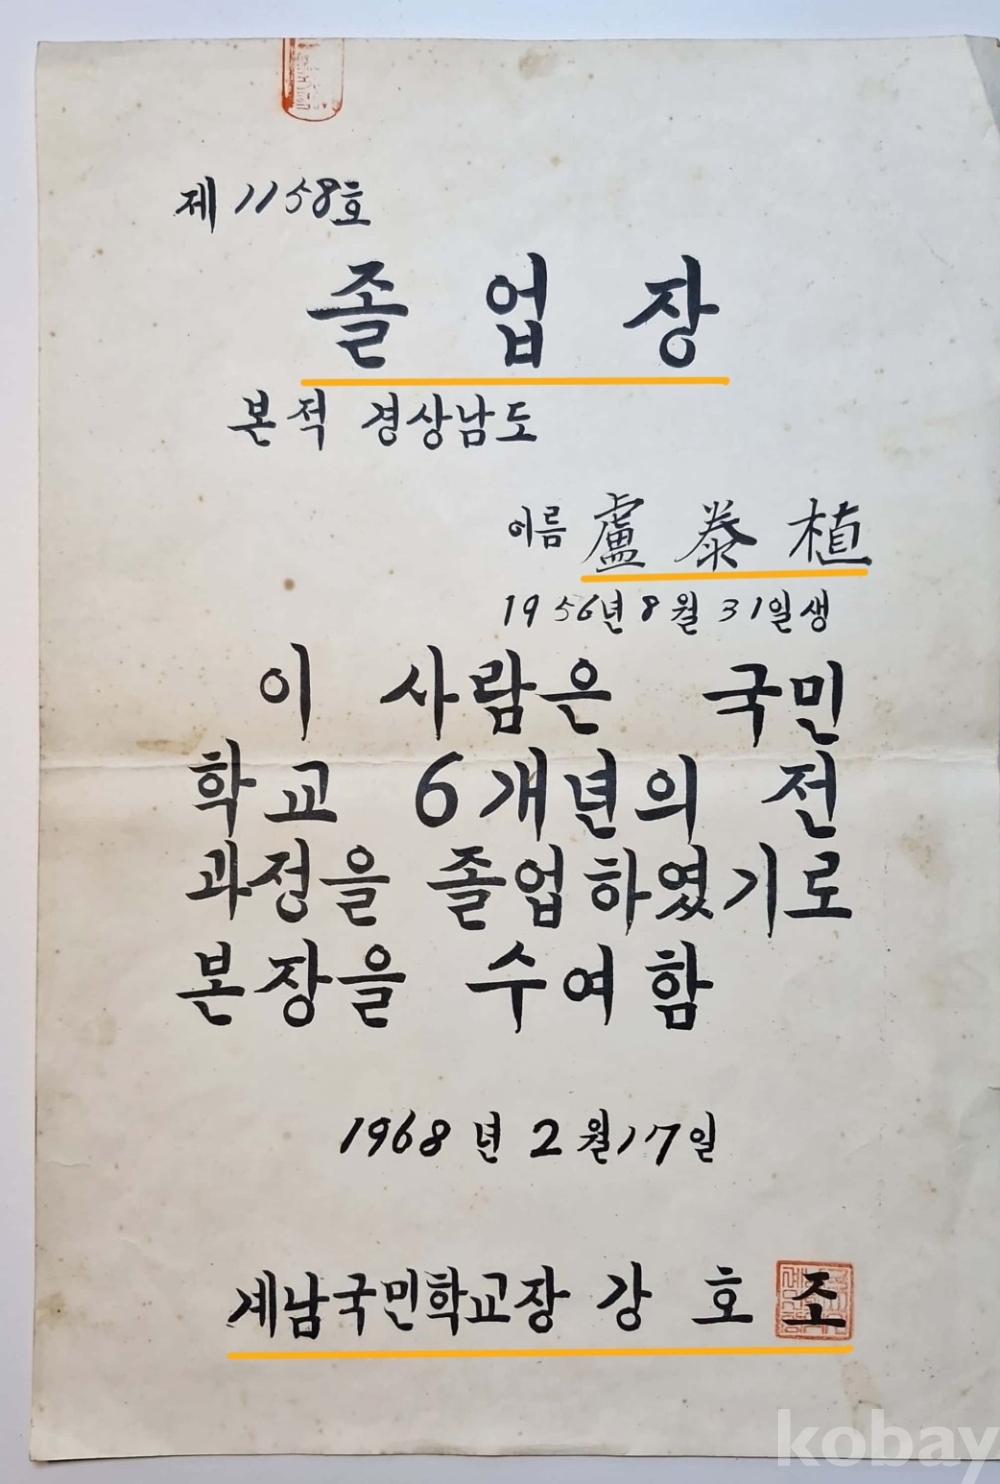 제 1158호
졸업장
본적 경상남도
이름 盧泰植
1956년 8월 31일생
이 사람은 국민
학교 6개년의 전
과정을 졸업하였기로
본장을 수여함
1968년 2월 17일
계남국민학교장 강호조
kobay